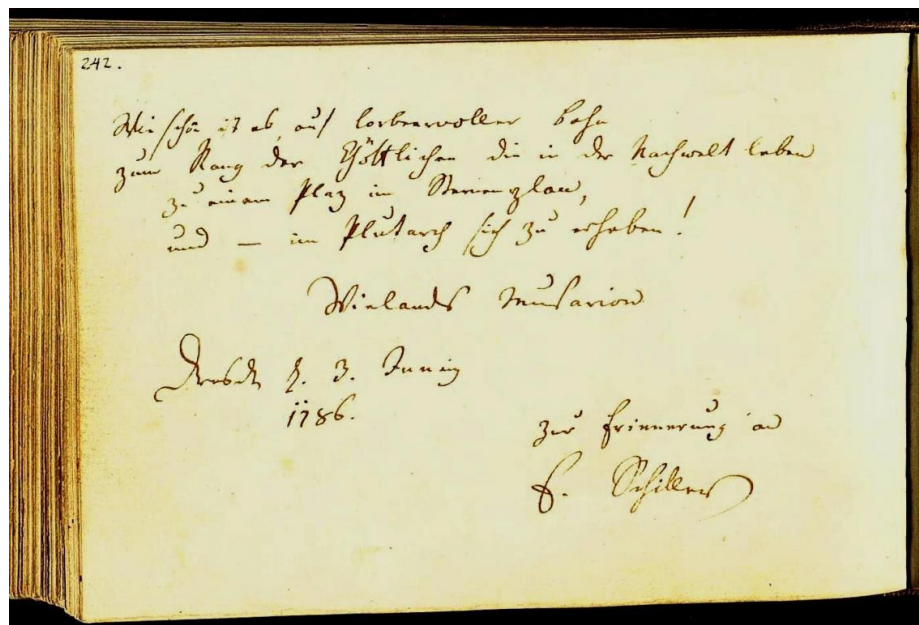 242.
Wie schön ist es, auf lorbeervoller bahn
zum Rang der Göttlichen die in der Nachwelt leben
zu einem Plaz im Sternenplan,
und — im Plutarch sich zu erheben!
Wielands Musarion
Dresden d. 3. Junius
1786.
zur Erinnerung an
F. Schiller